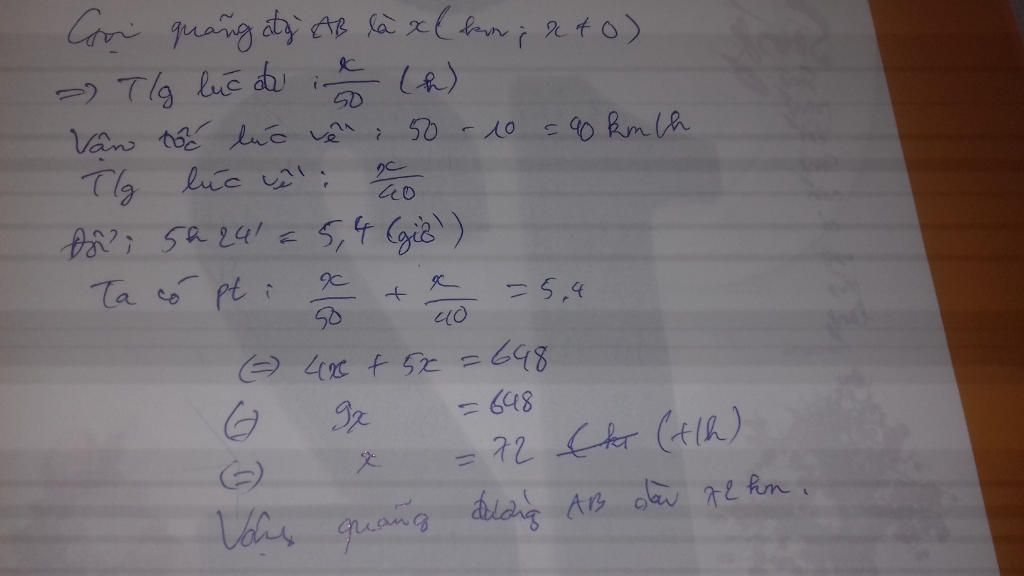 Gọi quãng đg AB là x (km; x ≠ 0)
=> T/g lúc đi : x/50 (h)
Vận tốc lúc về : 50 - 10 = 40 km/h
T/g lúc về : x/40
Đổi : 5h24' = 5,4 (giờ)
Ta có pt : x/50 + x/40 = 5,4
(=) 4x + 5x = 648
(=) 9x = 648
(=) x = 72 (t/h)
Vậy quãng đường AB dài 72 km.